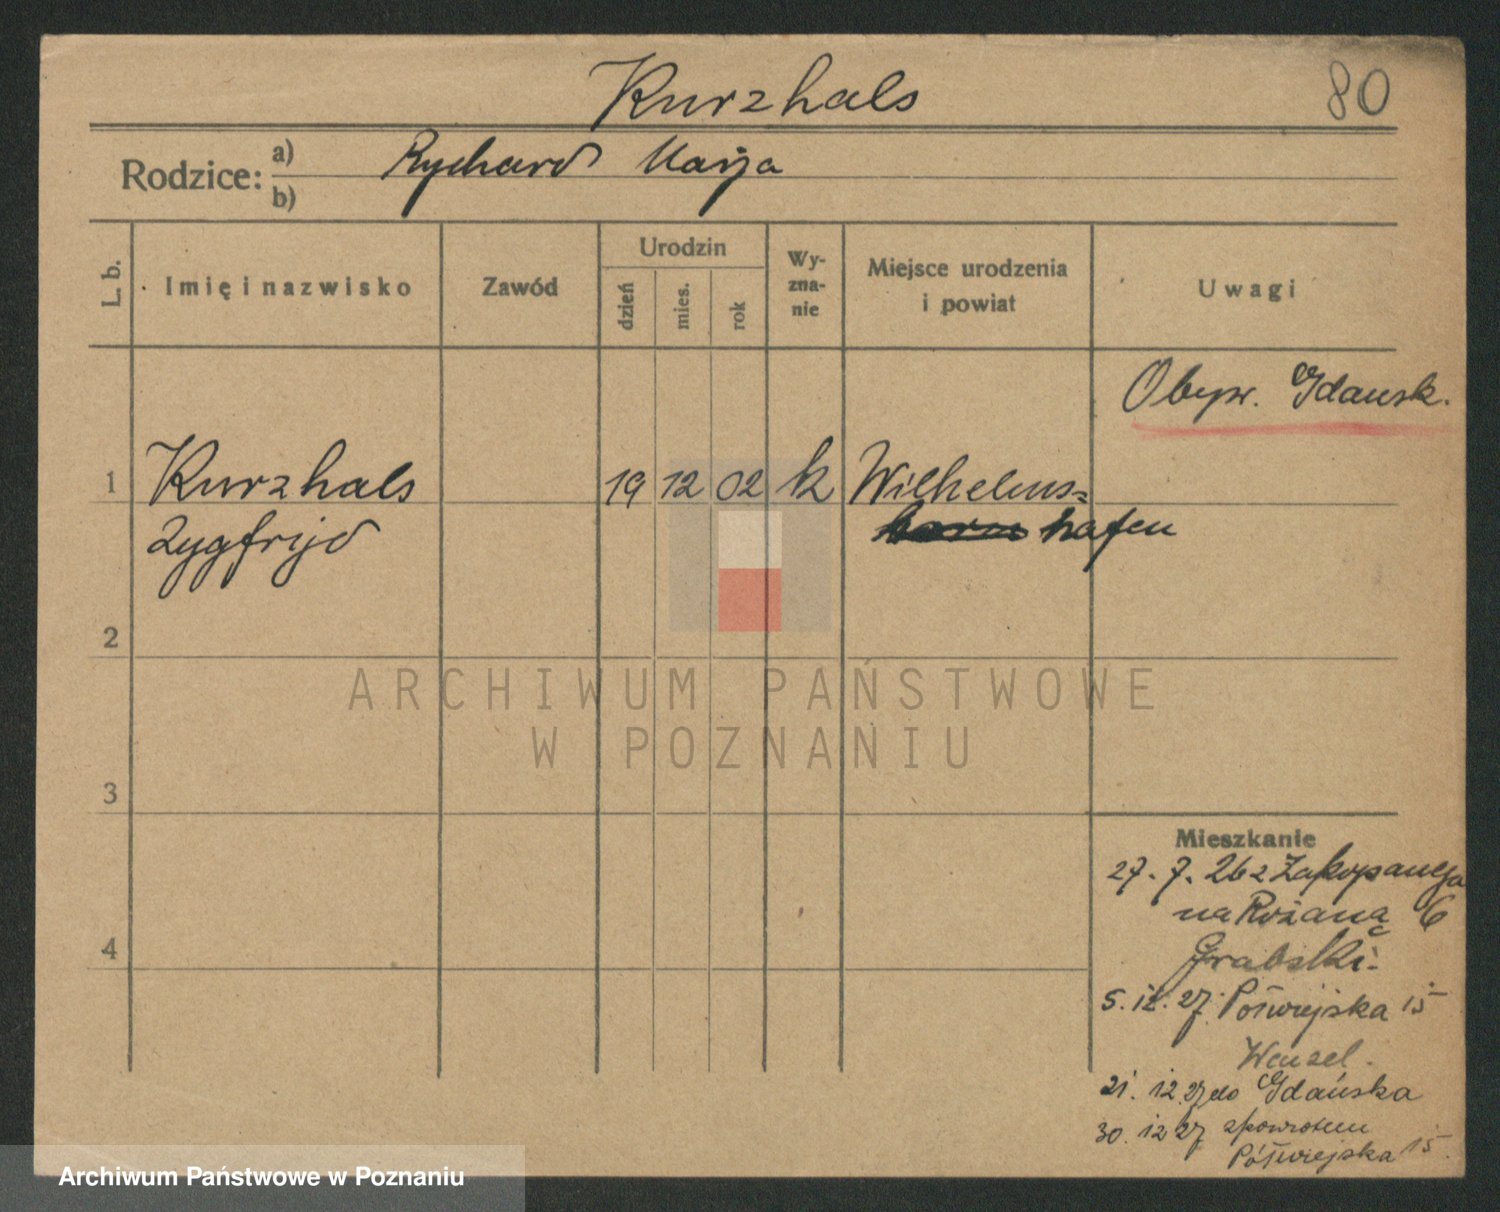 Kurzhals
80
Rodzice: a) Rychard Marja
b)
L. b.
Imię i nazwisko
Zawód
Urodzin
dzień
mies.
rok
Wy-
zna-
nie
Miejsce urodzenia
i powiat
Uwagi
Obyw. Gdańsk.
1 Kurzhals 19 12 02 k Wilhelms=
Zygfryd hafen
2
3
4
Mieszkanie
27. 7. 26 z Zakopanego
na Różaną 6
Grabski.
5. 12. 27. Półwiejska 15
Wenzel.
21. 12. 27 do Gdańska
30. 12 27 zpowrotem
Półwiejska 15.
ARCHIWUM PAŃSTWOWE
W POZNANIU
Archiwum Państwowe w Poznaniu